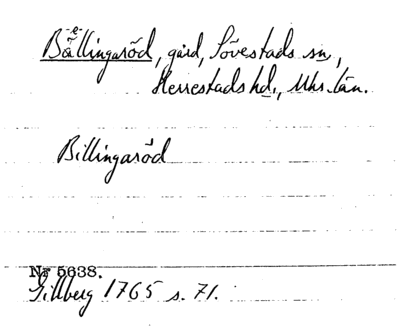 -e-
Bällingaröd, gård, Sövestads sn,
Herrestads hd., Mhs. län.
Billingaröd
Nr 5638.
Gillberg 1765 s. 71.